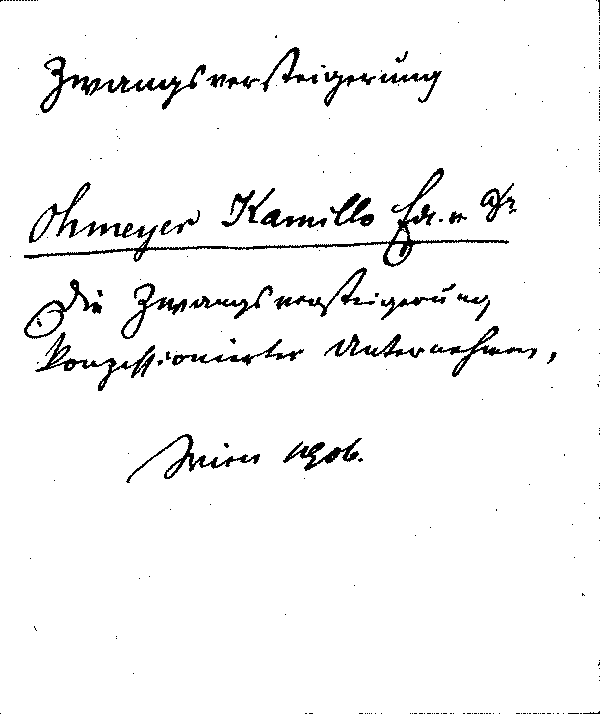 Zwangsversteigerung
Ohmeyer Kamillo Edl. v. Dr
Die Zwangsversteigerung
konzessionierter Unternehmen,
Wien 1906.